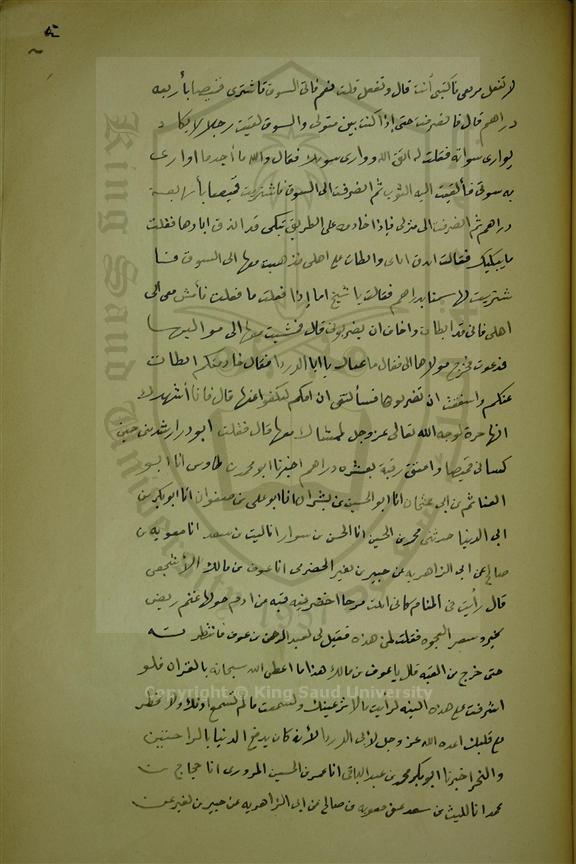 لا تفعل مر معي فاكتبي أنت قال وتفعل قلت نعم فاتى السوق فاشترى قميصا بأربعة
دراهم قال فانصرفت حتى إذا كنت بين منزلي والسوق لقيت رجلا لا يكاد
يوارى سوأته فقلت له اتق الله ووارى سوءتك فقال والله ما أجد ما اوارى
به سوءتي فألقيت اليه الثوب ثم انصرفت الى السوق فاشتريت قميصا بأربعة
دراهم ثم انصرفت الى منزلى فإذا خادمة على الطريق تبكى قد اندق اناوها فقلت
ما يبكيك فقالت اندق اناى وابطات على اهلى فذهبت معها الى السوق فا
شتريت لها سمنا بدراهم فقالت يا شيخ اما إذا فعلت ما فعلت فأمش معى الى
اهلى فانى قد ابطات واخاف ان يضربونى قال فمشيت معها الى مواليها
فدعوت فخرج مولاها الى فقال ما عناك يا ابا الدردا فقال خادمتكم ابطات
عنكم واشفقت ان تضربوها فسألتنى ان اتيكم لتكفوا عنها قال فأنا أشهدك
انها حرة لوجه الله تعالى عز وجل لممشاك معها قال فقلت ابو در ارشد منى حين
كسانى قميصا واعتق رقبة بعشره دراهم اخبرنا ابو محمد بن طاوس انا ابو
الغنائم بن ابى عثمان انا ابو الحسين بن بشران انا ابو على بن صفوان انا ابو بكر بن
ابى الدنيا حدثنى محمد بن الحسين انا الحسن بن سوار انا ليث بن سعد انا معويه بن
صالح عن ابى الزاهريه عن جبير بن نفير الحضرمى انا عوف بن مالك الأشجعى
قال رأيت فى المنام كانى اتيت مرجا اخضر فيه قبه من ادم حولها غنم ربض
تجتر وتبعر العجوه فقلت لمن هذه فقيل لى لعبد الرحمن بن عوف فانتظرته
حتى خرج من القبه قال يا عوف بن مالك هذا ما اعطى الله سبحانه بالقران فلو
اشرفت على هذه الثنيه لرايت ما لا تر عينك ولسمعت ما لم تسمع اذنك ولا خطر
على قلبك اعده الله عز وجل لأبى الدردا لأنه كان يدفع الدنيا بالراحتين
والنحر اخبرنا ابو بكر محمد بن عبد الباقى انا عمر بن الحسين المرورى انا حجاج بن
محمد انا الليث بن سعد عن معويه بن صالح عن ابى الزاهريه عن جبير بن نفير عن
Copyright © King Saud University
King Saud University
1957